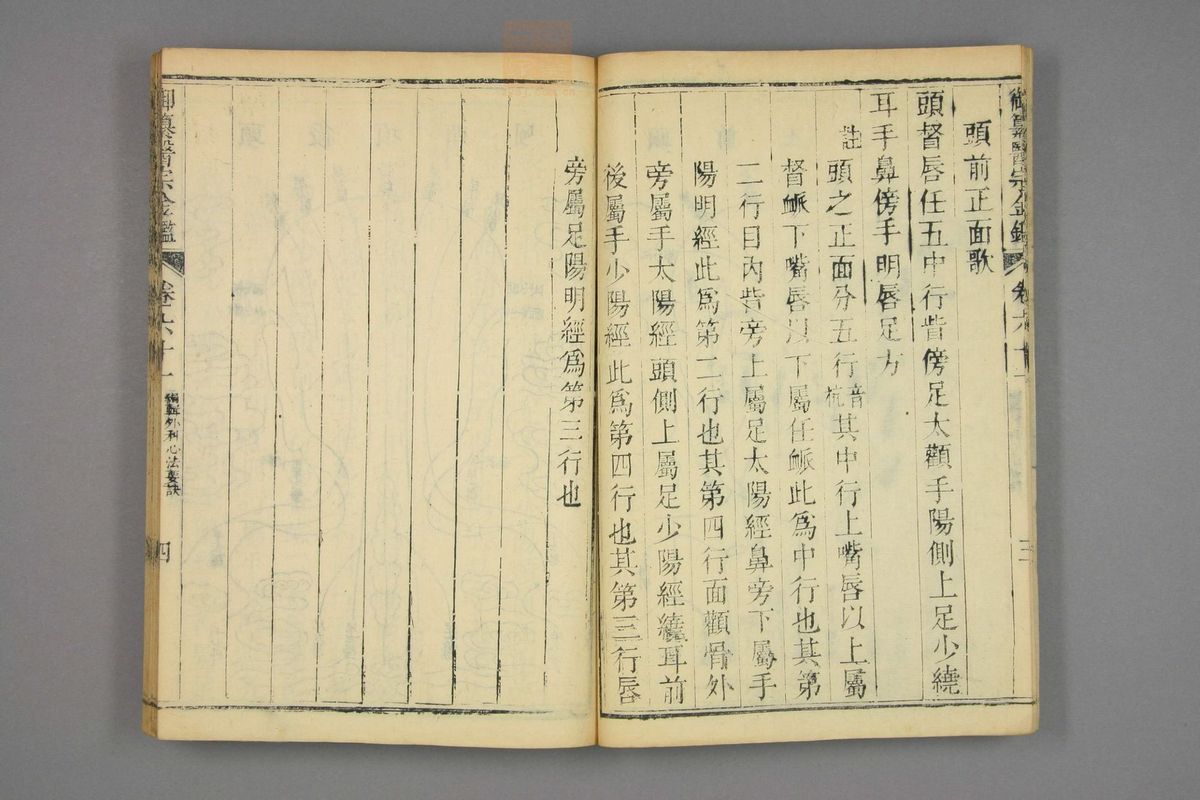 御纂醫宗金鑑 卷六十一 三
頭前正面歌
頭督唇任五中行眥傍足太顴手陽側上足少繞
耳手鼻傍手明唇足方
註頭之正面分五行音杭其中行上嘴唇以上屬
督脈下嘴唇以下屬任脈此爲中行也其第
二行目內眥旁上屬足太陽經鼻旁下屬手
陽明經此爲第二行也其第四行面顴骨外
旁屬手太陽經頭側上屬足少陽經繞耳前
後屬手少陽經此爲第四行也其第三行唇
旁屬足陽明經爲第三行也
御纂醫宗金鑑 卷六十一 編輯外科心法要訣 四